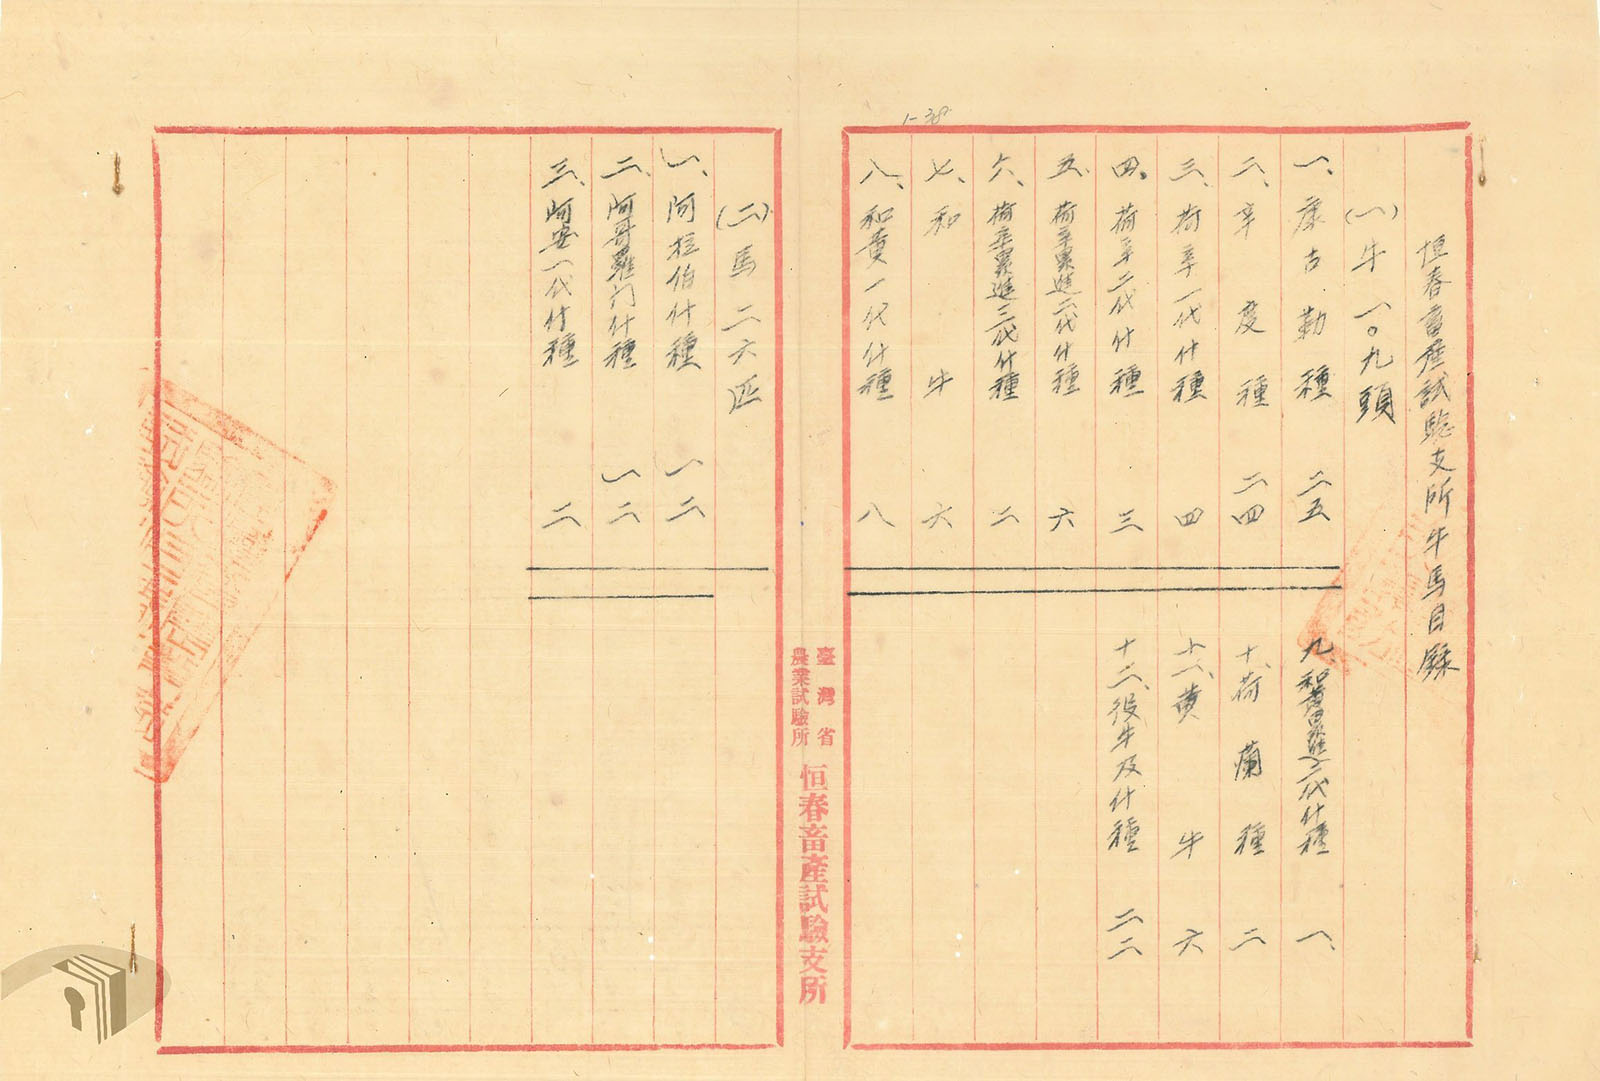 1-38
恒春畜產試驗支所牛馬目錄
(一)牛 一〇九頭
一、康古勒種 二五
二、辛度種 二四
三、荷辛一代什種 四
四、荷辛二代什種 三
五、荷辛累進二代什種 六
六、荷辛累進三代什種 二
七、和牛 六
八、和黄一代什種 八
九、和黄累進二代什種 一、
十、荷蘭種 二
十一、黄牛 六
十二、役牛及什種 二二
臺灣省
農業試驗所
恒春畜產試驗支所
(二)馬 二六匹
一、阿拉伯什種 一二
二、阿哥羅門什種 一二
三、阿安一代什種 二